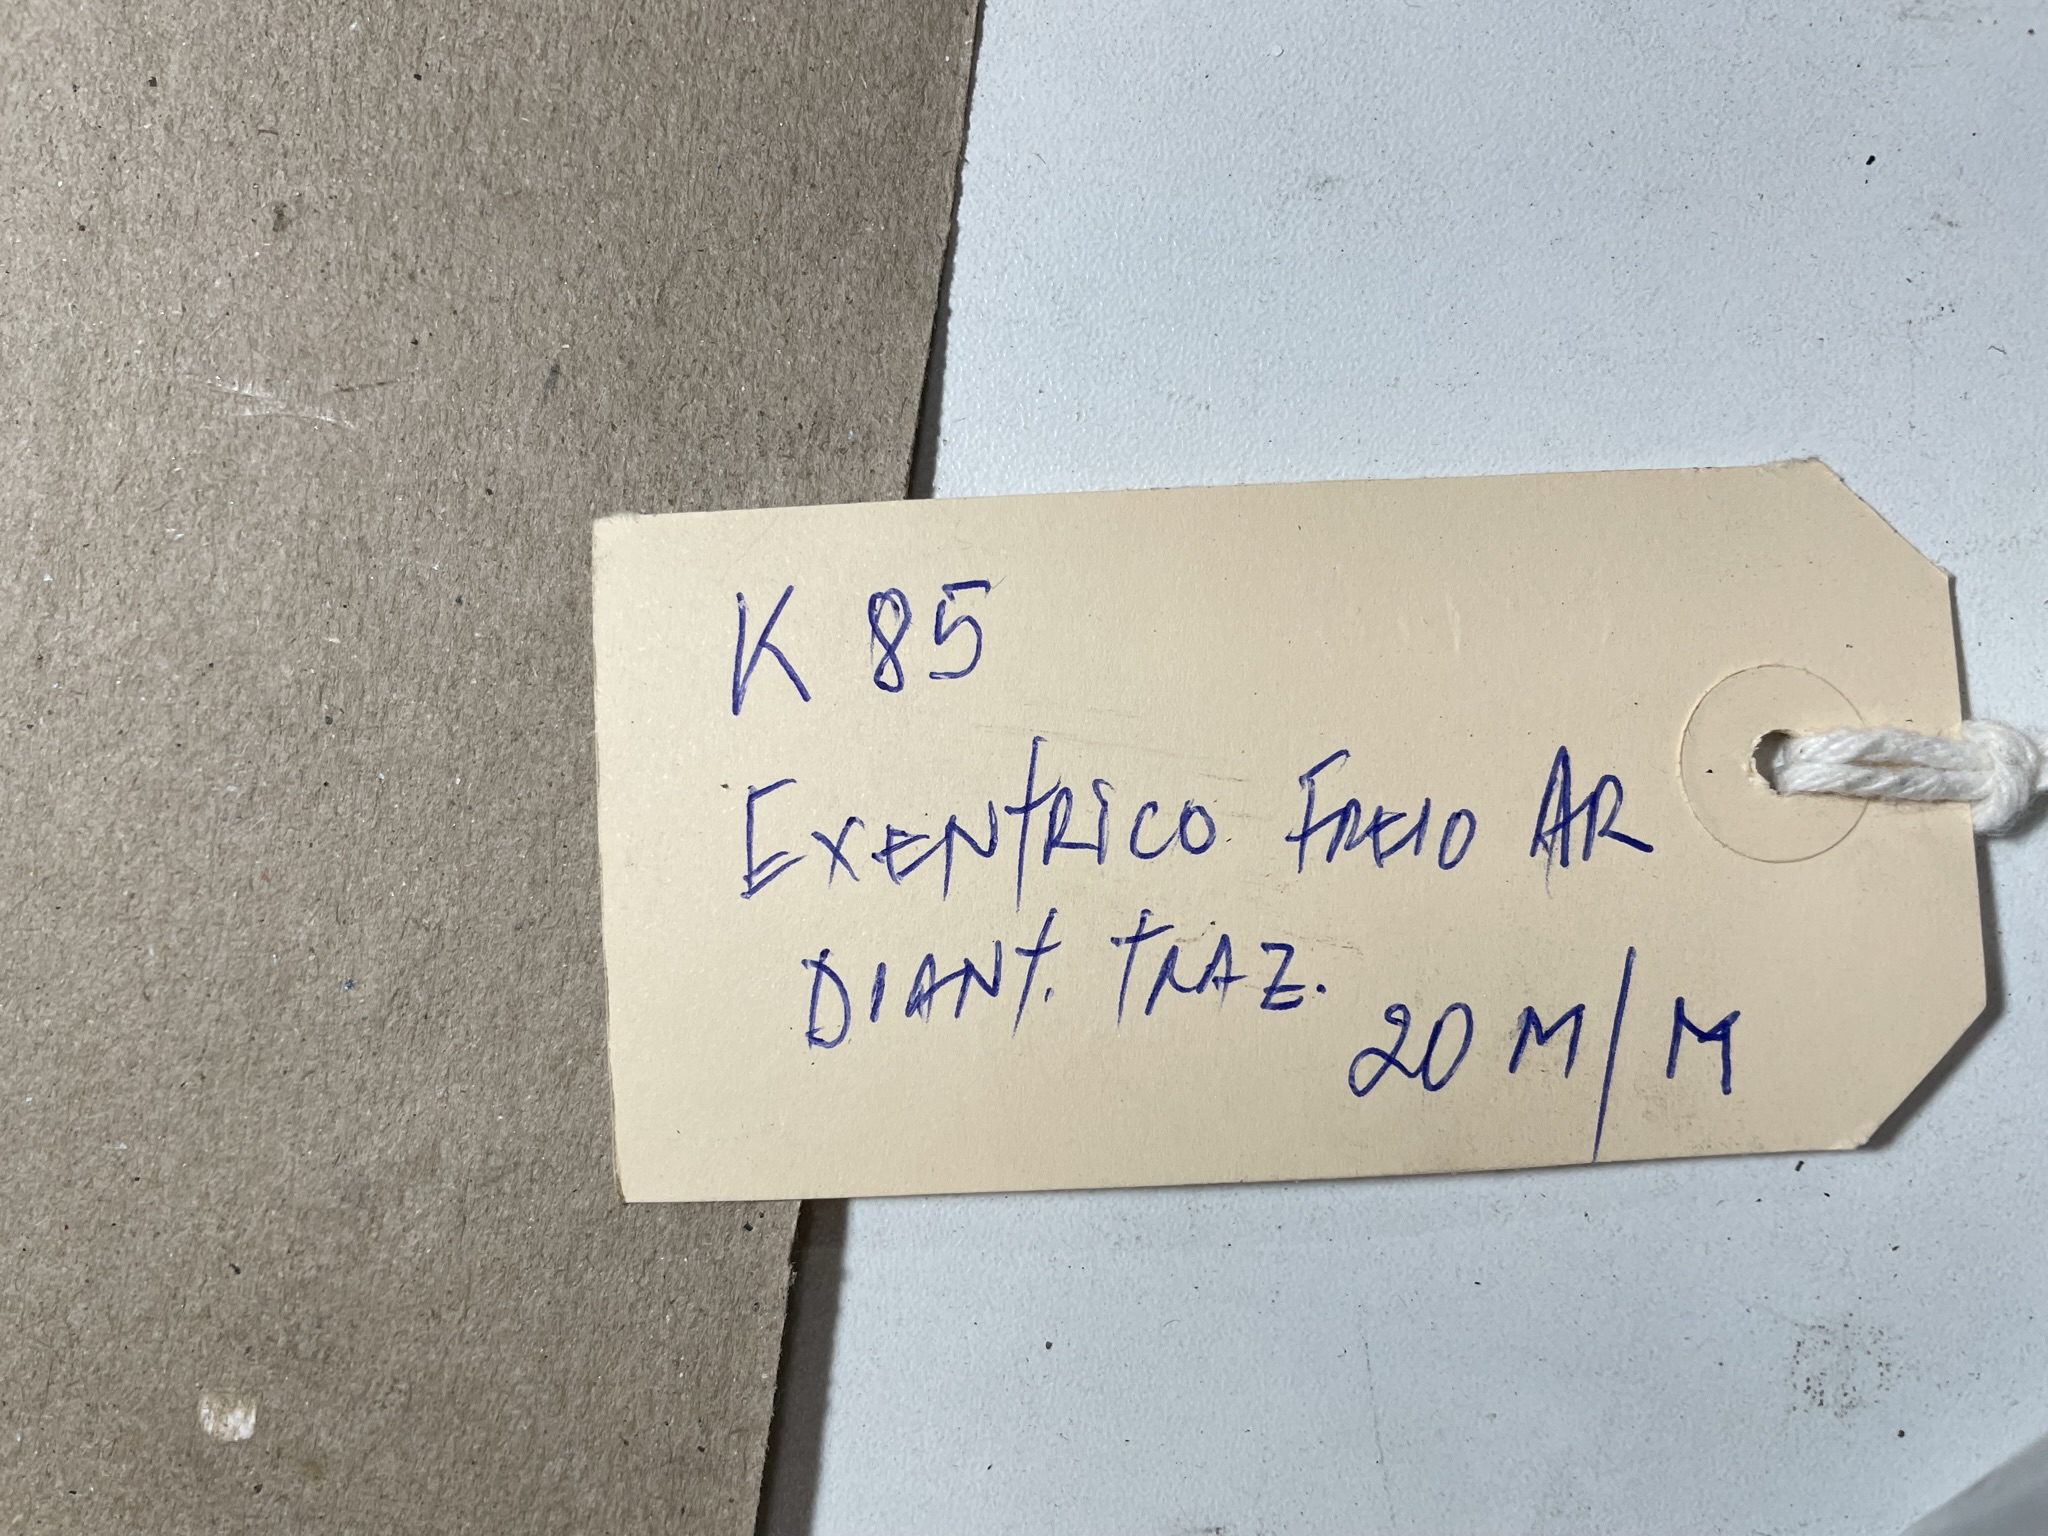 K 85
EXENTRICO FREIO AR
DIANT. TRAZ.
20 M/M